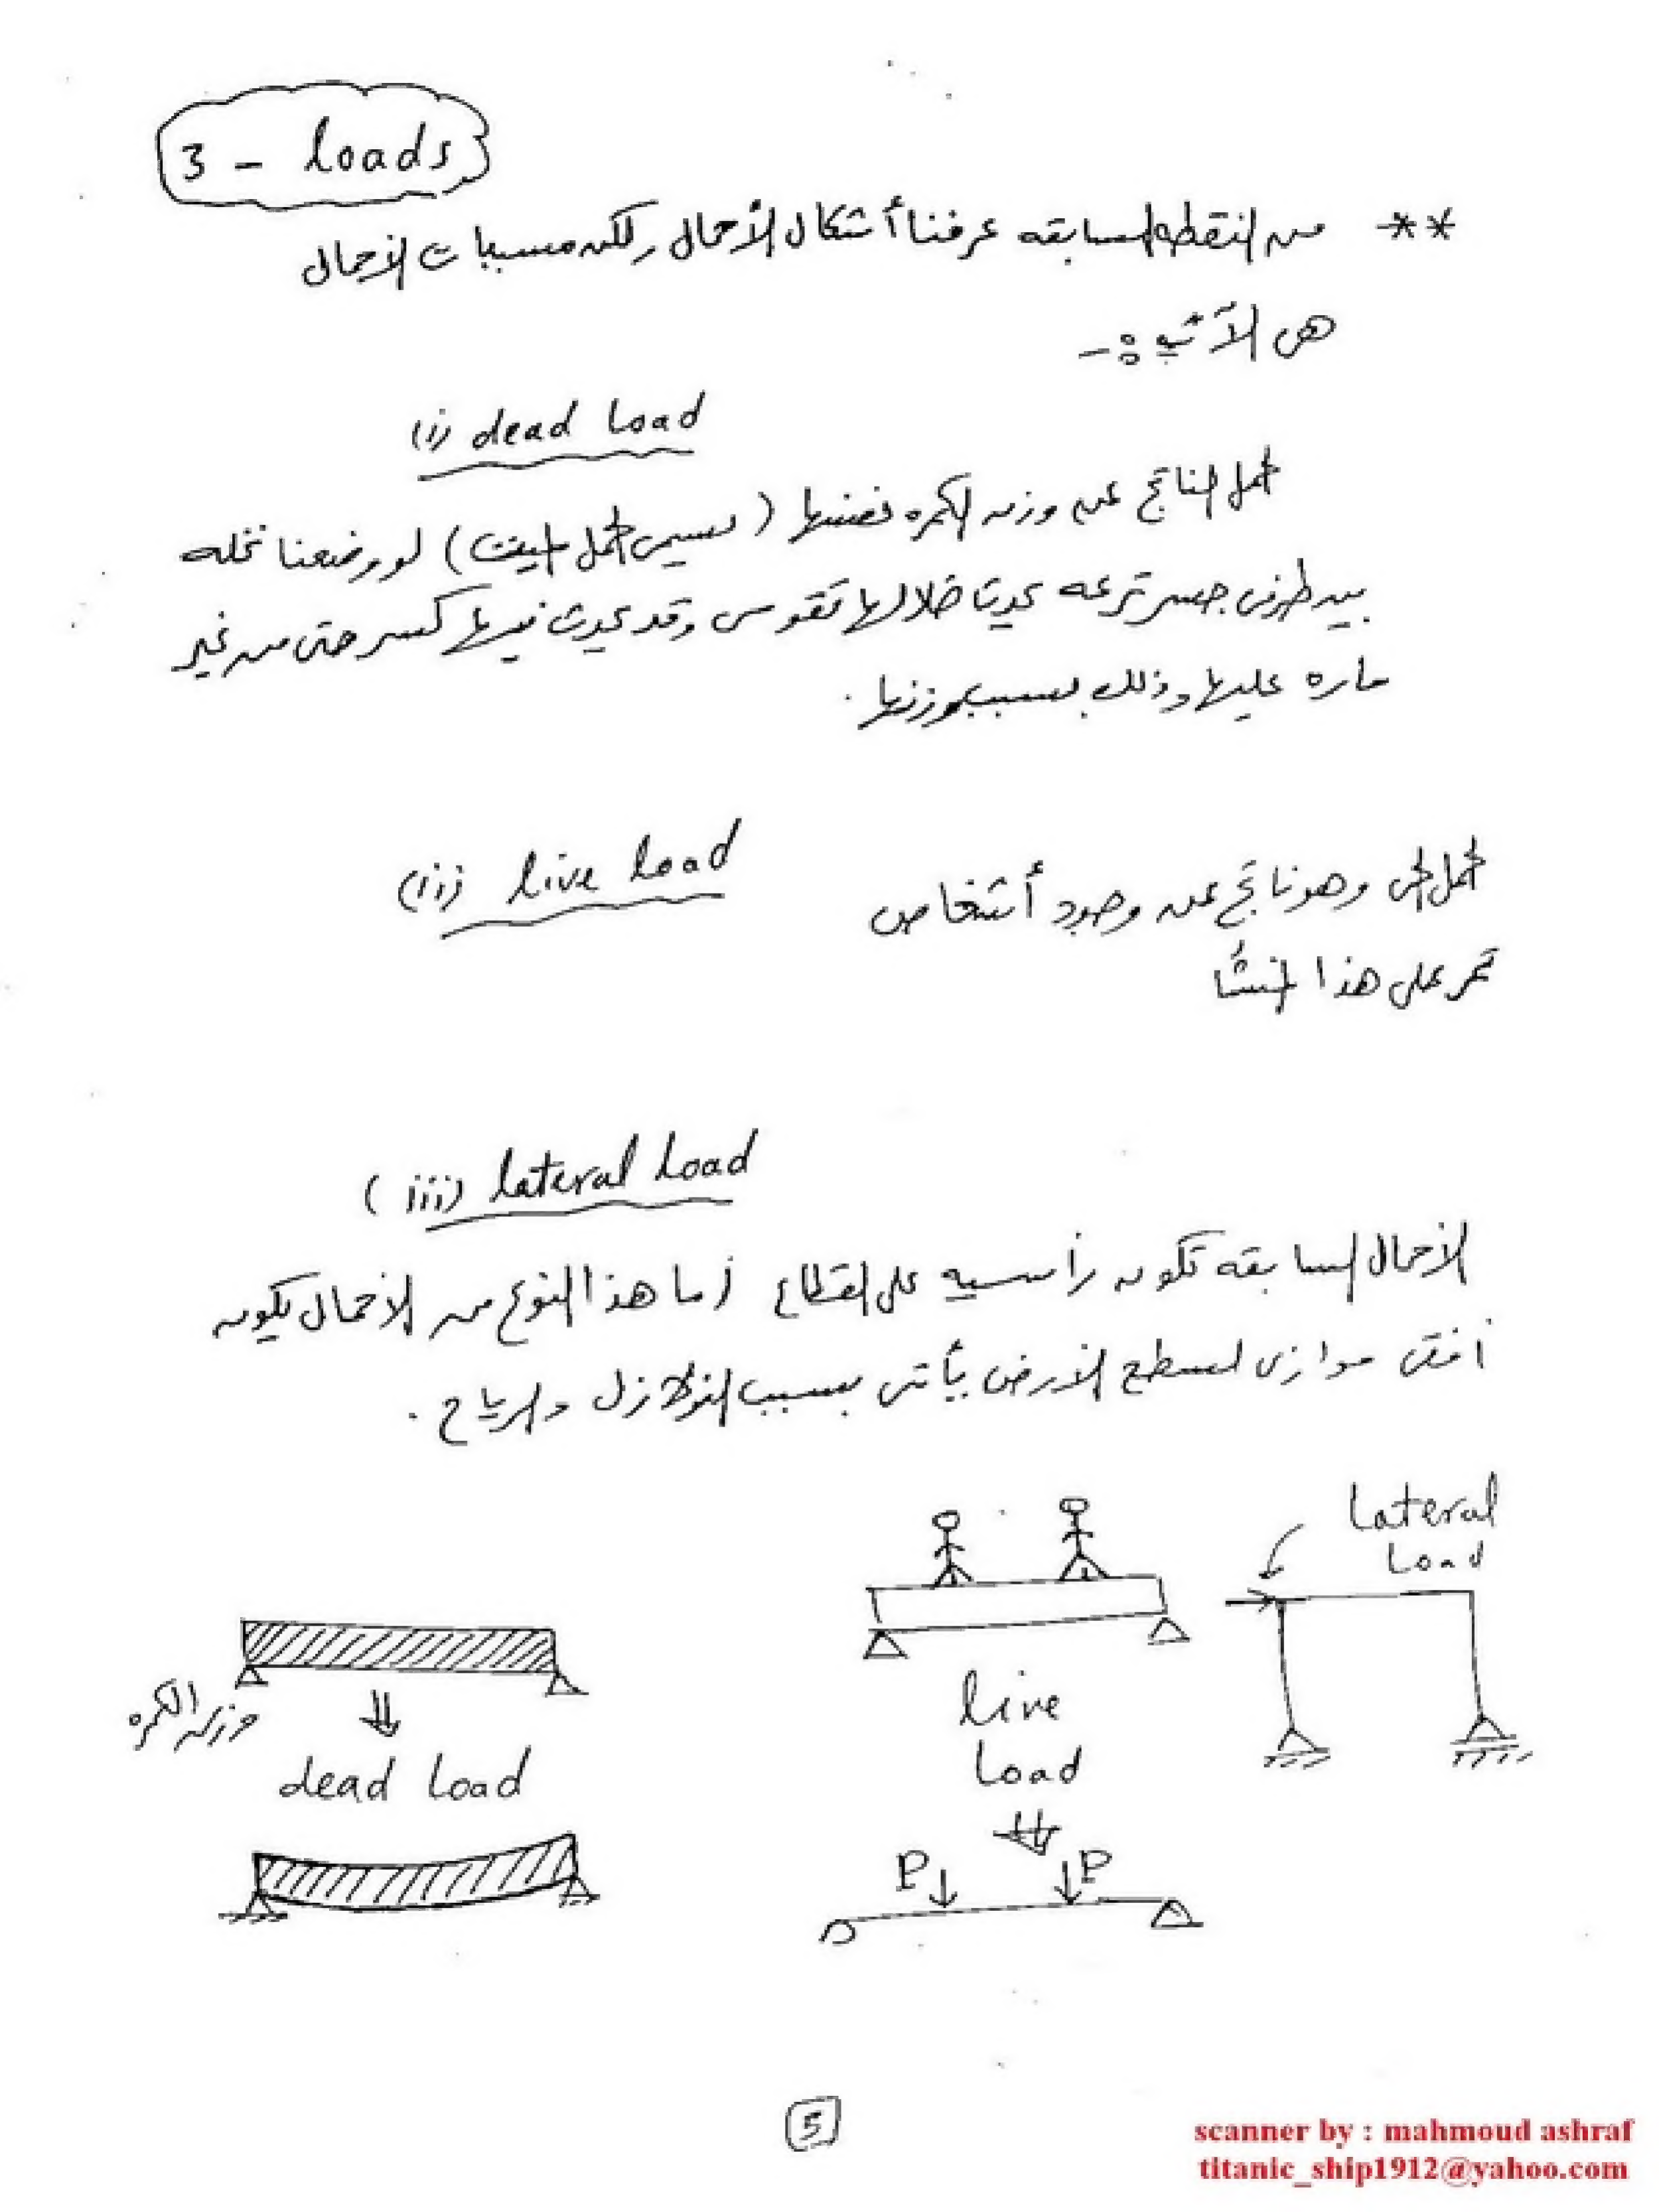 3 - loads
** من النقطه السابقه عرفنا أشكال الأحمال ولكن مسببات الأحمال
هى الآتيه :-
(i) dead load
الحمل الناتج عن وزن الكمره نفسها (يسمى الحمل الميت) لو وضعنا نخله
بين طرفى جسر ترعه يحدث خلالها تقوس وقد يحدث فيها كسر حتى من غير
ماره عليها وذلك بسبب وزنها .
(ii) live load
الحمل الحى وهو ناتج عن وجود أشخاص
تمر على هذا المنشأ
(iii) lateral load
الأحمال السابقه تكون رأسيه على القطاع أما هذا النوع من الأحمال يكون
أفقى موازى لسطح الأرض يأتى بسبب الزلازل والرياح .
lateral
load
وزن الكمره
dead load
live
load
P P
5
scanner by : mahmoud ashraf
titanic_ship1912@yahoo.com